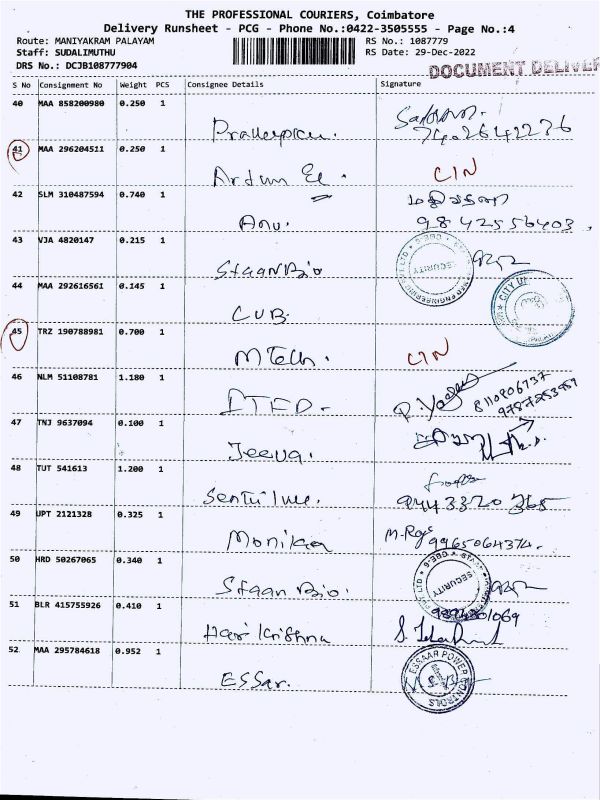 THE PROFESSIONAL COURIERS, Coimbatore
Delivery Runsheet - PCG - Phone No.:0422-3505555 - Page No.:4
Route: MANIYAKRAM PALAYAM
RS No.: 1087779
Staff: SUDALIMUTHU
RS Date: 29-Dec-2022
DRS No.: DCJB108777904
DOCUMENT DELIVER
S No Consignment No Weight PCS Consignee Details Signature
40 MAA 858200980 0.250 1
7402642276
41 MAA 296204511 0.250 1
CIN
42 SLM 310487594 0.740 1
Anu. 9842556403,
43 VJA 4820147 0.215 1
Staan Bio
SECURITY
44 MAA 292616561 0.145 1
CUB.
CITY U
45 TRZ 190788981 0.700 1
M Tech. CIN
46 NLM 51108781 1.180 1
8110806737
ITFD.
47 TNJ 9637094 0.100 1
Jeeva.
48 TUT 541613 1.200 1
9443320365
49 JPT 2121328 0.325 1
Monika 9965064374.
50 HRD 50267065 0.340 1
Staan Bio.
SECURITY
51 BLR 415755926 0.410 1
Hari Krishna
52 MAA 295784618 0.952 1
ESSar.
ESSAAR POWER CONTROLS